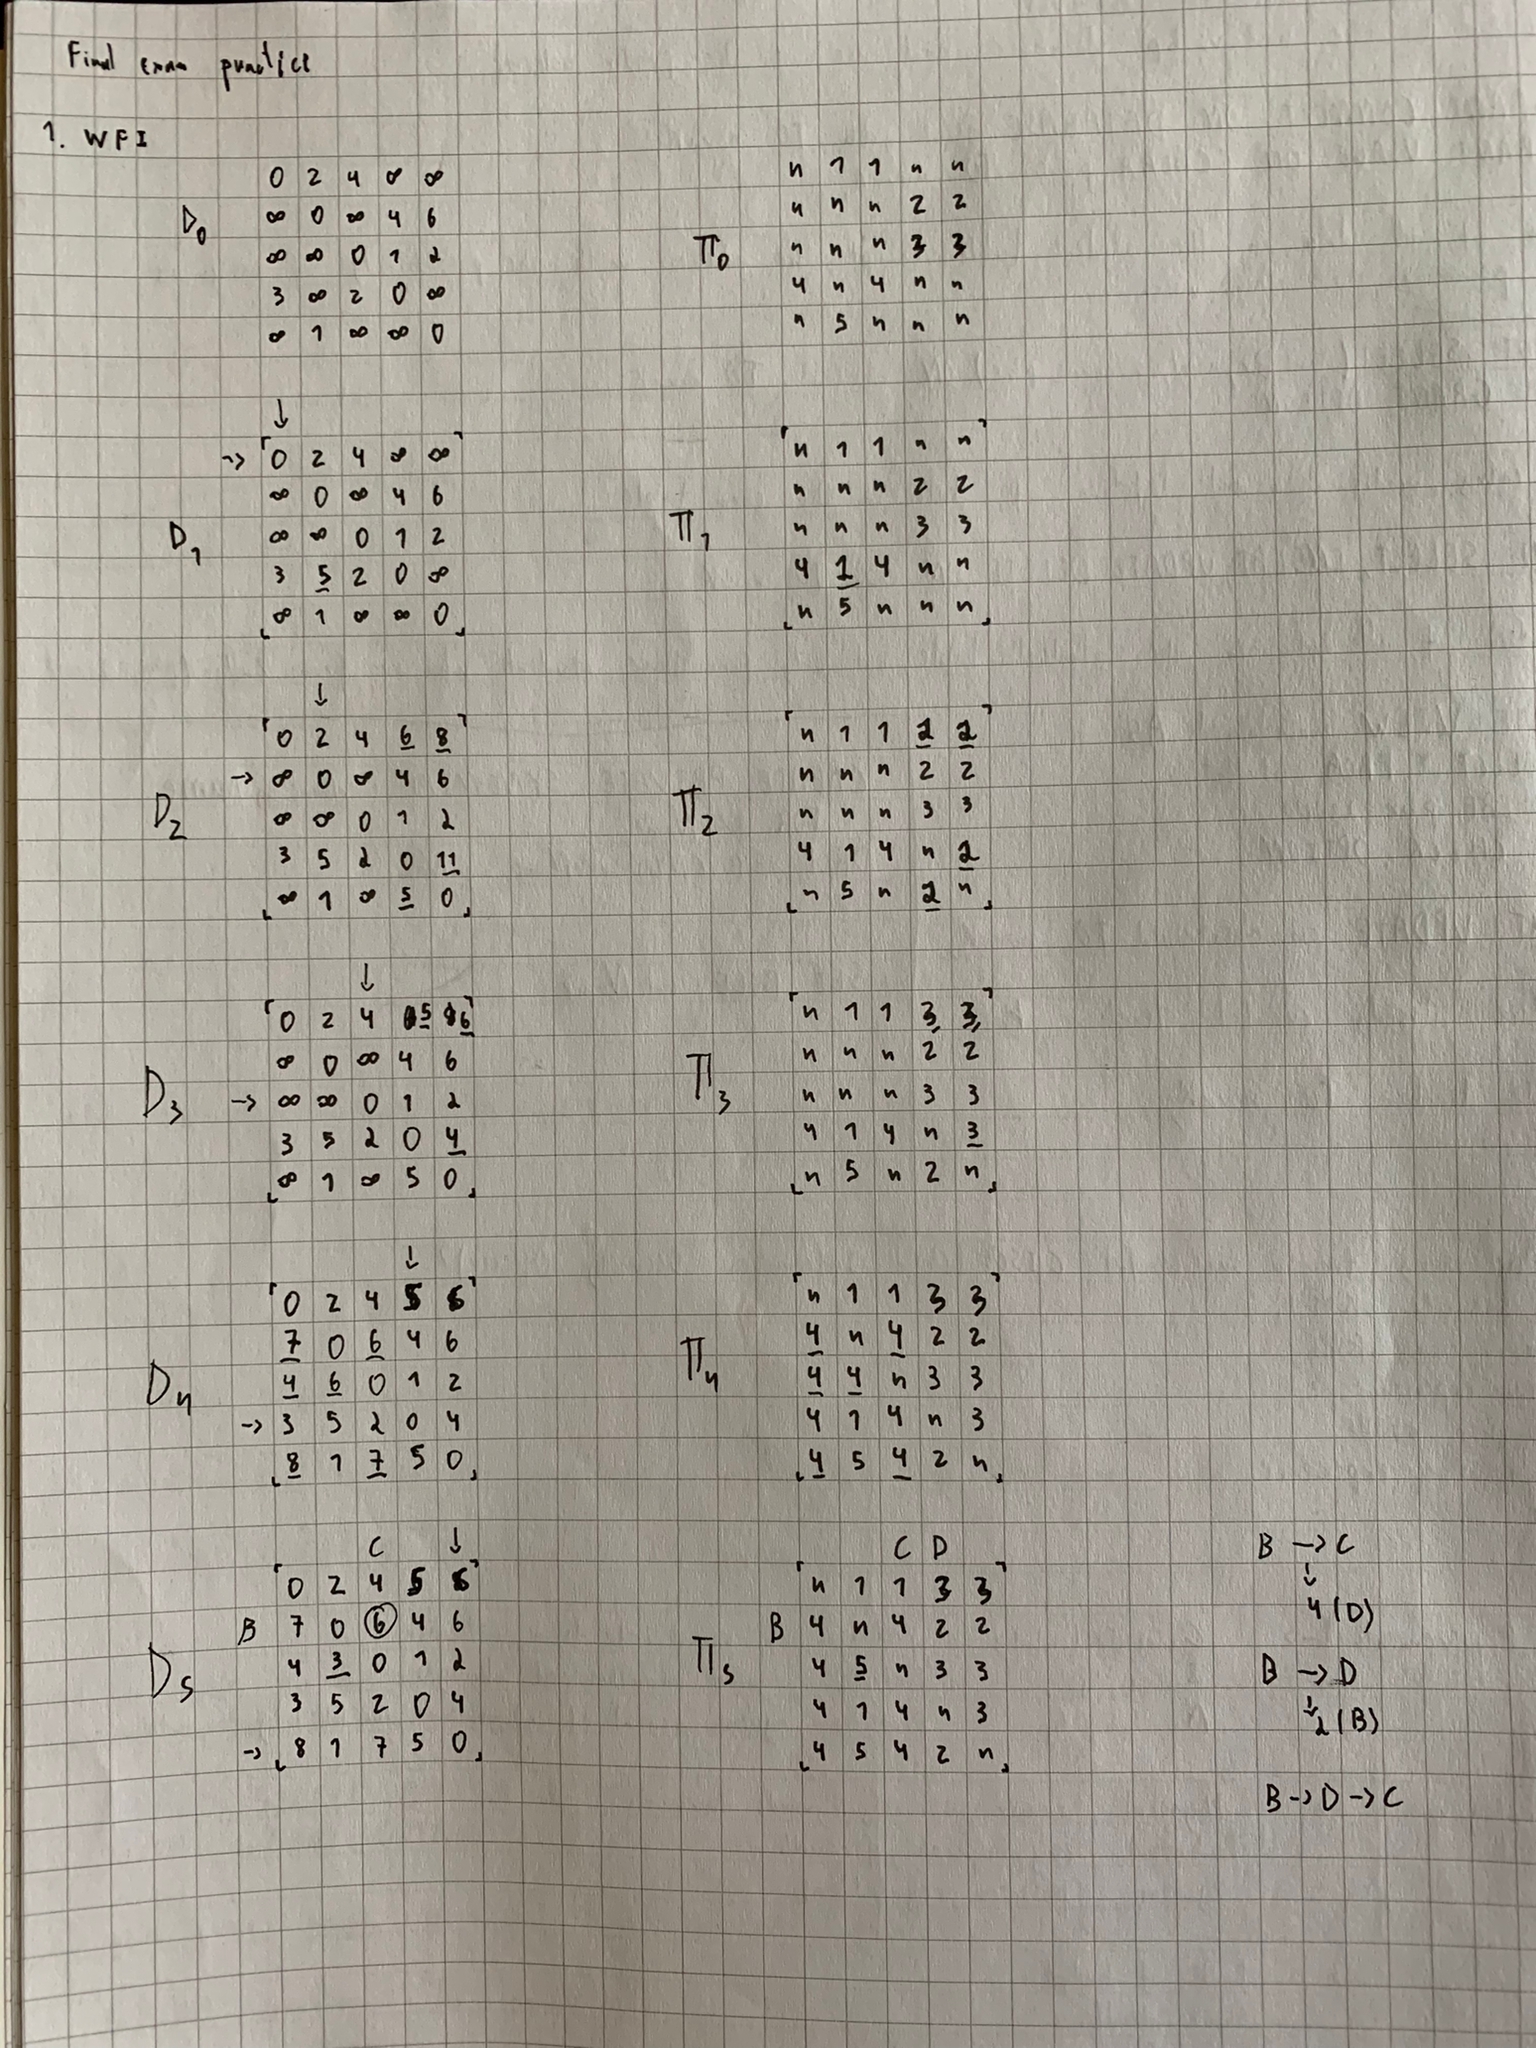 Final exam practice
1. WFI
D0
0 2 4 ∞ ∞
∞ 0 ∞ 4 6
∞ ∞ 0 1 2
3 ∞ 2 0 ∞
∞ 1 ∞ ∞ 0
π0
n 1 1 n n
n n n 2 2
n n n 3 3
4 n 4 n n
n 5 n n n
↓
D1
→ 0 2 4 ∞ ∞
∞ 0 ∞ 4 6
∞ ∞ 0 1 2
3 5 2 0 ∞
∞ 1 ∞ ∞ 0
π1
n 1 1 n n
n n n 2 2
n n n 3 3
4 1 4 n n
n 5 n n n
↓
D2
0 2 4 6 8
→ ∞ 0 ∞ 4 6
∞ ∞ 0 1 2
3 5 2 0 11
∞ 1 ∞ 5 0
π2
n 1 1 2 2
n n n 2 2
n n n 3 3
4 1 4 n 2
n 5 n 2 n
↓
D3
0 2 4 5 6
∞ 0 ∞ 4 6
→ ∞ ∞ 0 1 2
3 5 2 0 4
∞ 1 ∞ 5 0
π3
n 1 1 3 3
n n n 2 2
n n n 3 3
4 1 4 n 3
n 5 n 2 n
↓
D4
0 2 4 5 6
7 0 6 4 6
4 6 0 1 2
→ 3 5 2 0 4
8 1 7 5 0
π4
n 1 1 3 3
4 n 4 2 2
4 4 n 3 3
4 1 4 n 3
4 5 4 2 n
C ↓
D5
0 2 4 5 6
B 7 0 6 4 6
4 3 0 1 2
3 5 2 0 4
→ 8 1 7 5 0
C D
π5
n 1 1 3 3
B 4 n 4 2 2
4 5 n 3 3
4 1 4 n 3
4 5 4 2 n
B → C
↓
4 (D)
B → D
↓
2 (B)
B → D → C